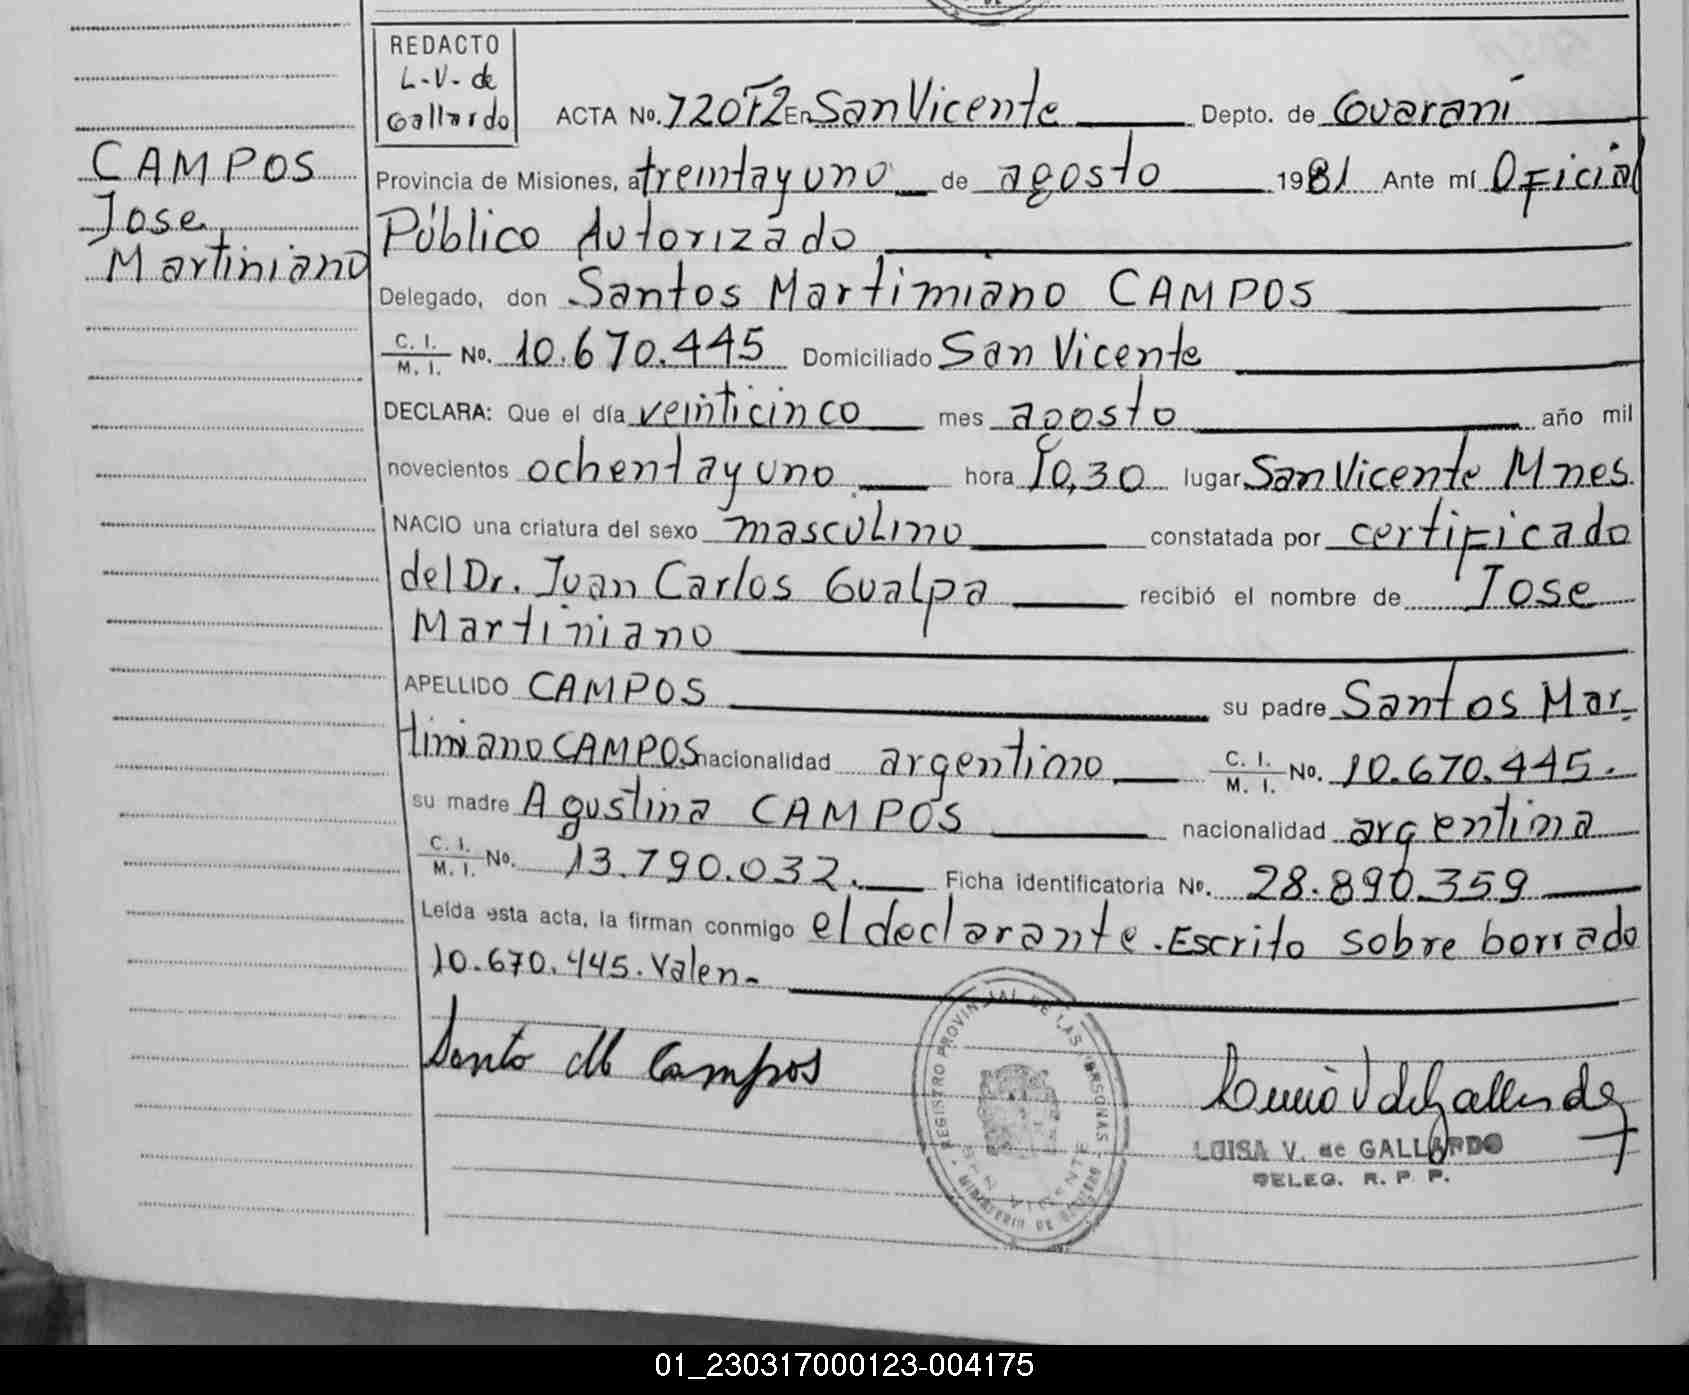 REDACTO
L-V-de
Gallardo
CAMPOS
Jose
Martiniano
ACTA No. 720T2 En San Vicente Depto. de Guaraní
Provincia de Misiones, a treintayuno de agosto 1981 Ante mí Oficial
Público Autorizado
Delegado, don Santos Martimiano CAMPOS
C. I. M. I. No. 10.670.445 Domiciliado San Vicente
DECLARA: Que el día veinticinco mes agosto año mil
novecientos ochentayuno hora 10,30 lugar San Vicente Mnes.
NACIO una criatura del sexo masculino constatada por certificado
del Dr. Juan Carlos Gualpa recibió el nombre de Jose
Martiniano
APELLIDO CAMPOS su padre Santos Mar-
timiano CAMPOS nacionalidad argentino C. I. M. I. No. 10.670.445.
su madre Agustina CAMPOS nacionalidad argentina
C. I. M. I. No. 13.790.032. Ficha identificatoria No. 28.890.359
Leída esta acta, la firman conmigo el declarante. Escrito sobre borrado
10.670.445. Valen-
Santo M Campos
REGISTRO PROVINCIAL DE LAS PERSONAS
SAN VICENTE
MINISTERIO DE GOBIERNO
LUISA V. de GALLARDO
DELEG. R. P. P.
01_230317000123-004175